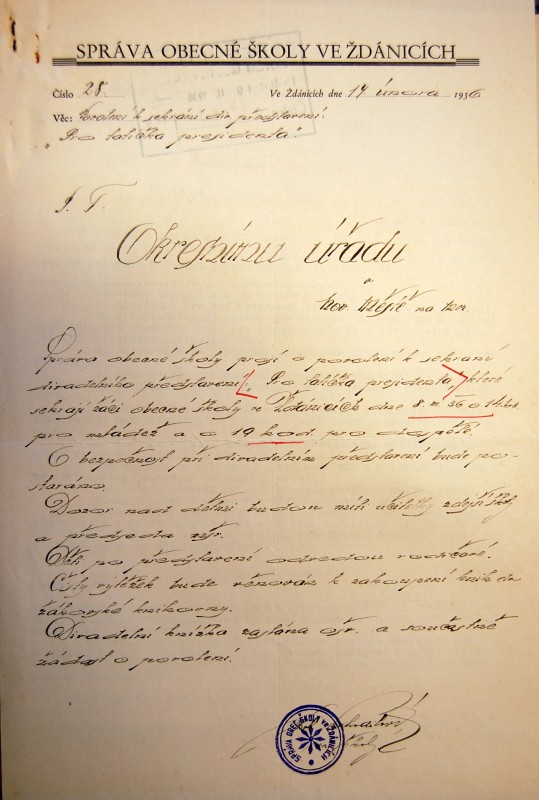 SPRÁVA OBECNÉ ŠKOLY VE ŽDÁNICÍCH
Číslo 28. Ve Ždánicích dne 14. února 1936
Věc: Povolení k sehrání div. představení:
"Pro tatíčka presidenta".
Okresnímu úřadu
v
Nov. Městě na Mor.
Správa obecné školy prosí o povolení k sehrání
divadelního představení: "Pro tatíčka presidenta", které
sehrají žáci obecné školy ve Ždánicích dne 8. III. 36 o 14 hod.
pro mládež a o 19 hod. pro dospělé.
O bezpečnost při divadelním představení bude po-
staráno.
Dozor nad dětmi budou míti učitelky zdejší školy
a předseda
Děti po představení odvedou rodičové.
Čistý výtěžek bude věnován k zakoupení knih do
žákovské knihovny.
Divadelní knížka zaslána a současně
žádost o povolení.
SPRÁVA OBEC. ŠKOLY VE ŽDÁNICÍCH